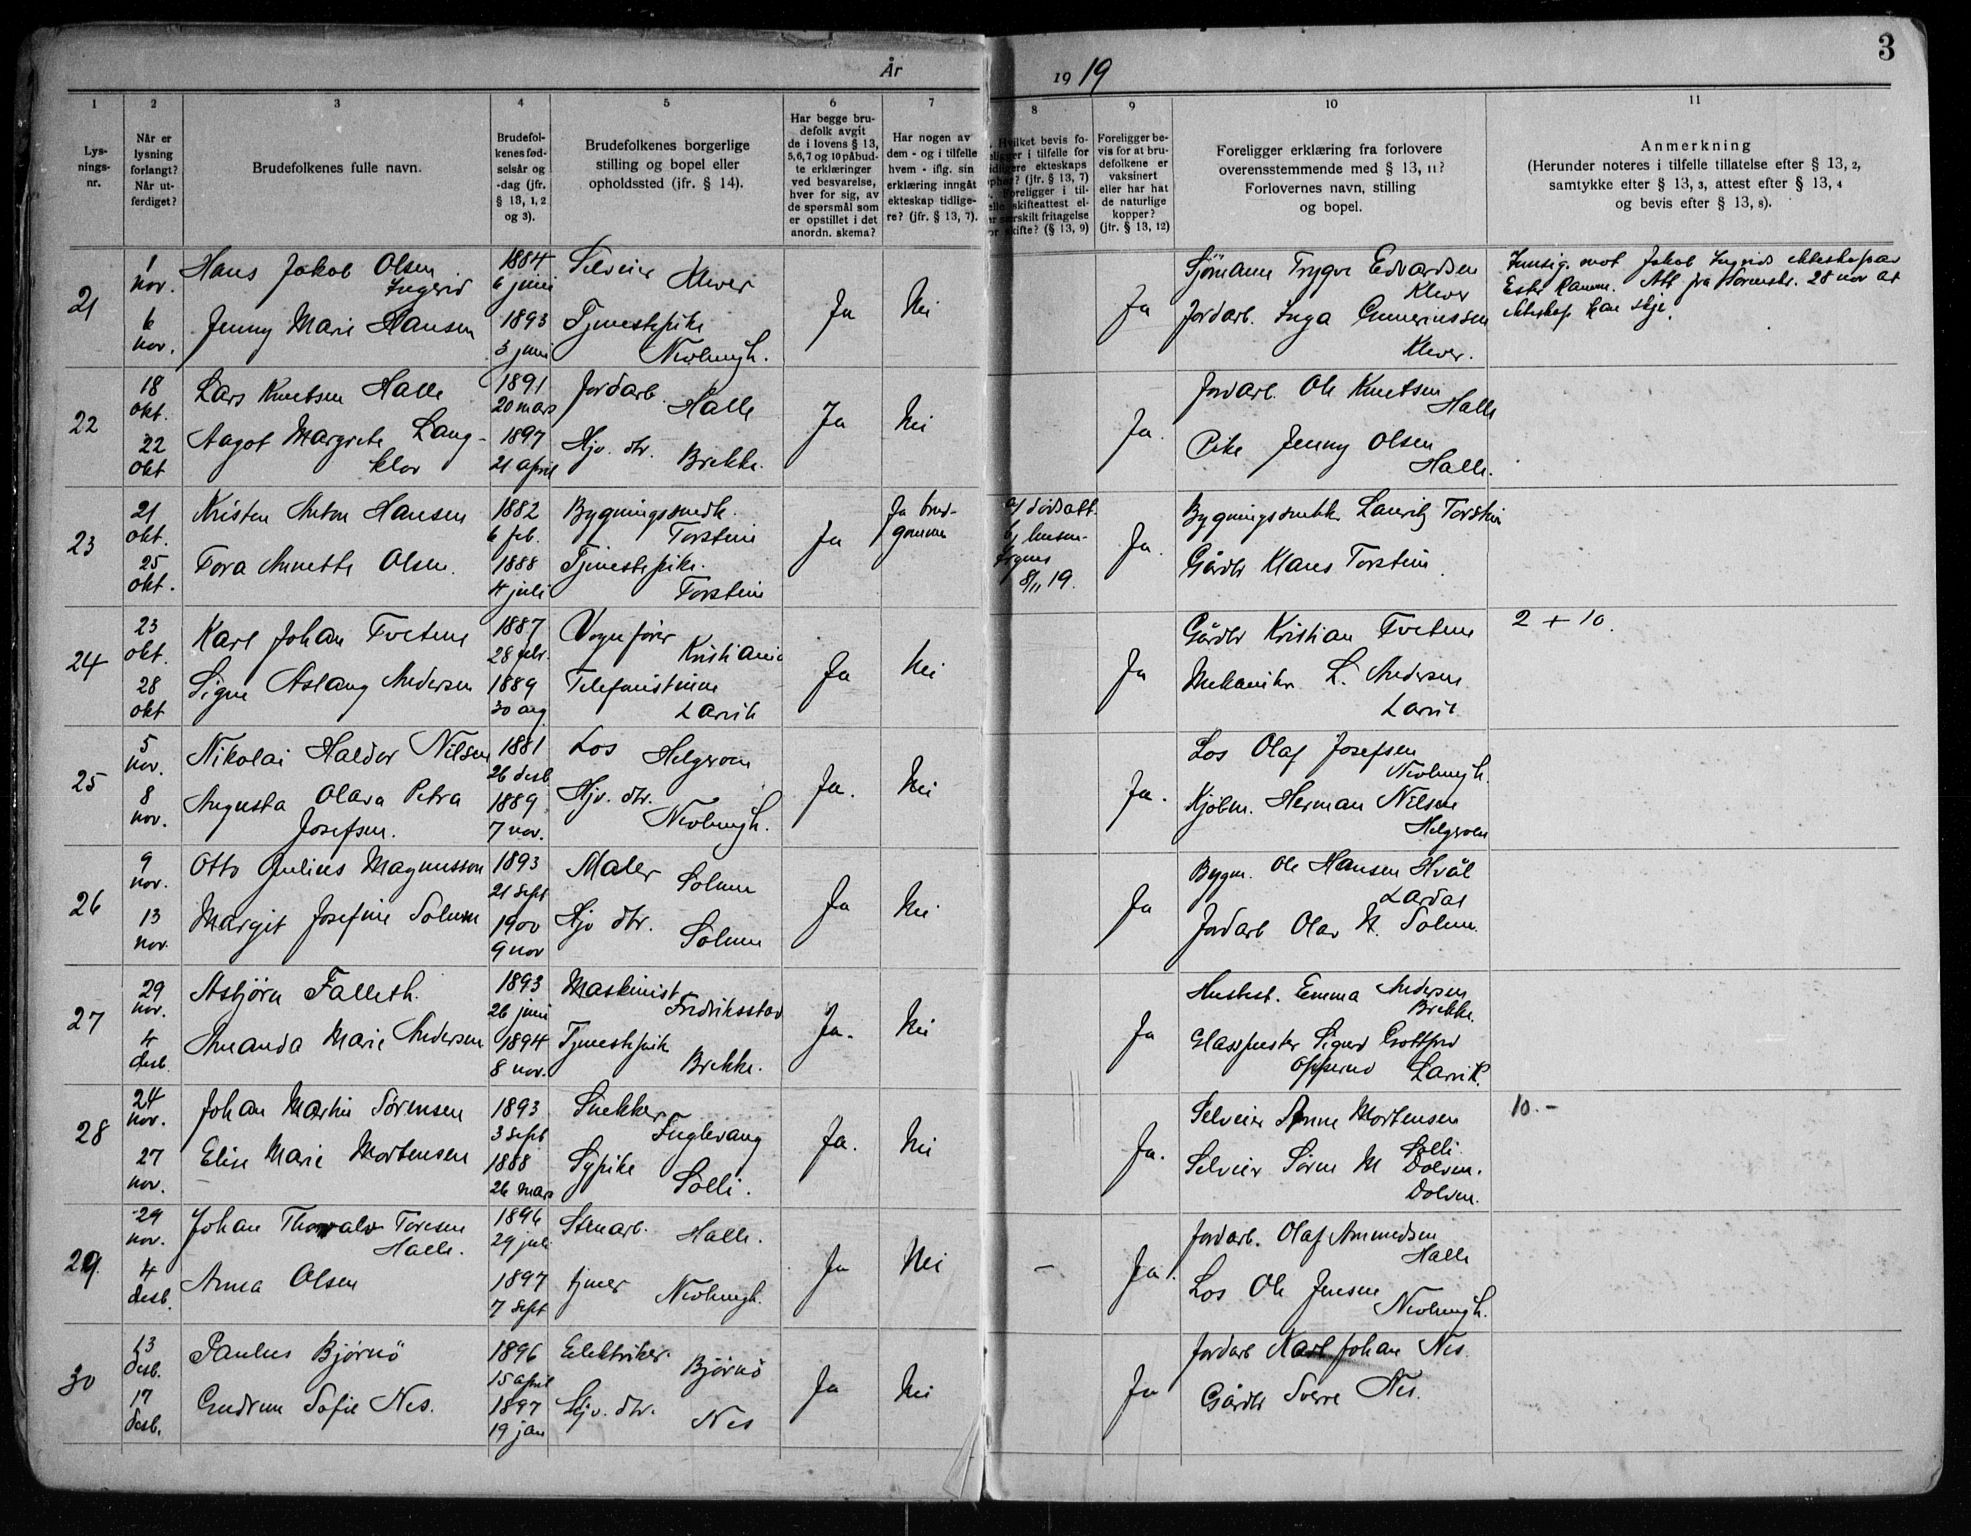 3
År 1919
1
Lys-
nings-
nr.
2
Når er
lysning
forlangt?
Når ut-
ferdiget?
3
Brudefolkenes fulle navn.
4
Brudefol-
kenes fød-
selsår og
-dag (jfr.
§ 13, 1, 2
og 3).
5
Brudefolkenes borgerlige
stilling og bopel eller
opholdssted (jfr. § 14).
6
Har begge bru-
defolk avgit
de i lovens § 13,
5, 6, 7 og 10 påbud-
te erklæringer
ved besvarelse,
hver for sig, av
de spørsmål som
er opstillet i det
anordn. skema?
7
Har nogen av
dem - og i tilfelle
hvem - iflg. sin
erklæring inngått
ekteskap tidlige-
re? (jfr. § 13, 7).
8
Hvilket bevis fo-
religger i tilfelle for
tidligere ekteskaps
ophør? (jfr. § 13, 7)
Foreligger i til-
felle skifteattest el-
ler særskilt fritagelse
for skifte? (§ 13, 9)
9
Foreligger be-
vis for at bru-
defolkene er
vaksinert
eller har hat
de naturlige
kopper?
(jfr. § 13, 12)
10
Foreligger erklæring fra forlovere
overensstemmende med § 13, 11?
Forlovernes navn, stilling
og bopel.
11
Anmerkning
(Herunder noteres i tilfelle tillatelse efter § 13, 2,
samtykke efter § 13, 3, attest efter § 13, 4
og bevis efter § 13, 8).
21
1 nov.
6 nov.
Hans Jakob Olsen
Ingerid
Jenny Marie Hansen
1884
6 juni
1893
3 juni
Selveier
Klever
Tjenestepike
Nevlungh.
Ja
Nei
Ja
Sjømann Trygve Edvardsen
Klever
Jordarb. Inga Guneriussen
Klever.
mot Jakob Ingrids ekteskap av
Ester Att. fra 28 nov at
ekteskap kan skje.
22
18 okt.
22 okt
Lars Knutsen Halle
Aagot Margrete Lang-
klov
1891
20 mars
1897
21 april
Jordarb.
Halle
Hjv. dtr. Brekke.
Ja
Nei
Ja.
Jordarb. Ole Knutsen
Halle
Pike Jenny Olsen
Halle.
23
21 okt.
25 okt.
Kristen Anton Hansen
Tora Annette Olsen.
1882
6 feb.
1888
4 juli
Bygningssnedk.
Torstein
Tjenestepike.
Torstein
Ja
Ja brud-
gommen
a/ dødsatt.
8/11 19.
Ja.
Bygningssnekk. Lauritz Torstein
Gårdbr Klaus Torstein.
24
23 okt.
28 okt
Karl Johan Tvetene
Signe Aslaug Andersen
1887
28 febr.
1889
30 aug.
Vognfører
Kristiania
Telefonistinne
Larvik
Ja
Nei
Ja
Gårdbr Kristian Tvetene
Mekaniker L. Andersen
Larvik.
2 + 10.
25
5 nov.
8 nov.
Nikolai Haldor Nilsen
Augusta Olava Petra
Josefsen.
1881
26 desb
1889
7 nov.
Los Helgeroen
Hjv. dtr.
Nevlungh.
Ja.
Nei
Ja.
Los Olaf Josefsen
Nevlungh.
Kjøbm. Herman Nilsen
Helgeroen
26
9 nov.
13 nov.
Otto Julius Magnusson
Margit Josefine Solum
1893
21 sept
1900
9 nov
Maler Solum
Hjv dtr.
Solum
Ja
Nei
Ja
Bygm. Ole Hansen Hvål
Lardal
Jordarb Olav N. Solum.
27
29 nov.
4 desb.
Asbjørn Falleth.
Amanda Marie Andersen
1893
26 juni
1894
8 nov.
Maskinist
Fredriksstad
Tjenestepike
Brekke.
Ja.
Nei
Ja
Husbest. Emma Andersen
Brekke.
Glasspuster Sigurd Gottfred
Opperud Larvik.
28
24 nov.
27 nov.
Johan Martin Sørensen
Elise Marie Mortensen
1893
3 sept
1888
26 mars
Snekker
Fuglevang
Sypike
Solli.
Ja.
Nei
Ja.
Selveier Mortensen
Solli
Selveier Søren M Dolven.
Dolven.
10.-
29.
29 nov.
4 desb.
Johan Thorvald Toresen
Halle.
Anna Olsen
1896
29 juli
1897
7 sept
Stenarb. Halle.
tjener Nevlungh.
Ja
Nei
-
Ja.
Jordarb. Olaf Ammundsen
Halle
Los Ole Jensen
Nevlungh.
30
13 desb.
17 desb.
Paulus Bjørnø
Gudrun Sofie Nes.
1896
15 april
1897
19 jan
Elektriker.
Bjørnø
Hjv. dtr.
Nes
Ja
Nei
Ja
Jordarb Karl Johan Nes.
Gårdbr Sverre Nes.